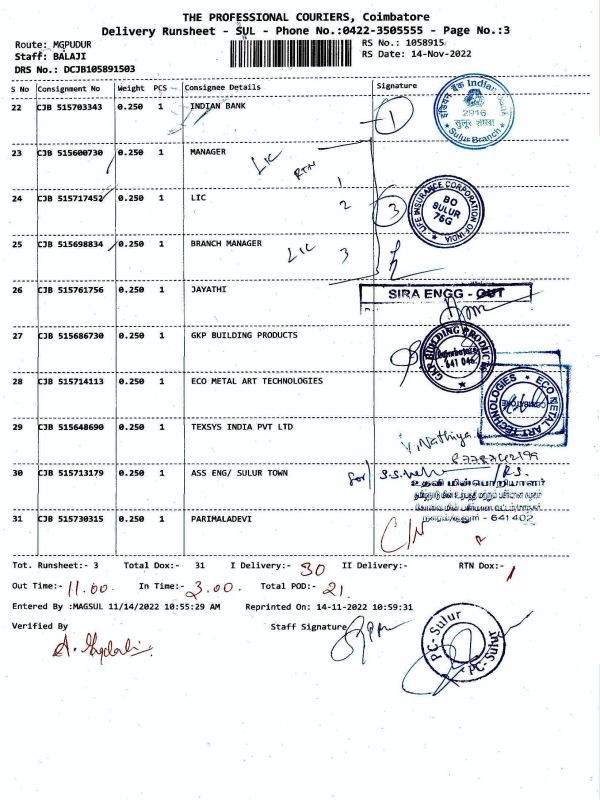 THE PROFESSIONAL COURIERS, Coimbatore
Delivery Runsheet - SUL - Phone No.:0422-3505555 - Page No.:3
Route: MGPUDUR
RS No.: 1058915
Staff: BALAJI
RS Date: 14-Nov-2022
DRS No.: DCJB105891503
S No Consignment No Weight PCS Consignee Details Signature
22 CJB 515703343 0.250 1 INDIAN BANK 1
इंडियन बैंक Indian Bank
2916
सुलूर शाखा
Sulur Branch
23 CJB 515600730 0.250 1 MANAGER LIC RTN
1
24 CJB 515717452 0.250 1 LIC 2 3
LIFE INSURANCE CORPORATION OF INDIA
BO
SULUR
76G
25 CJB 515698834 0.250 1 BRANCH MANAGER LIC 3
26 CJB 515761756 0.250 1 JAYATHI
SIRA ENGG - OUT
27 CJB 515686730 0.250 1 GKP BUILDING PRODUCTS
GKP BUILDING PRODUCTS
28 CJB 515714113 0.250 1 ECO METAL ART TECHNOLOGIES
ECO METAL ART TECHNOLOGIES
29 CJB 515648690 0.250 1 TEXSYS INDIA PVT LTD
V. Nathiya
30 CJB 515713179 0.250 1 ASS ENG/ SULUR TOWN
for
உதவி மின்பொறியாளர்
641 402
31 CJB 515730315 0.250 1 PARIMALADEVI
C/N
Tot. Runsheet:- 3 Total Dox:- 31 I Delivery:- 30 II Delivery:- RTN Dox:- 1
Out Time:- 11.00. In Time:- 3.00. Total POD:- 21
Entered By :MAGSUL 11/14/2022 10:55:29 AM Reprinted On: 14-11-2022 10:59:31
Verified By
Staff Signature
PC-Sulur
PC-Sulur